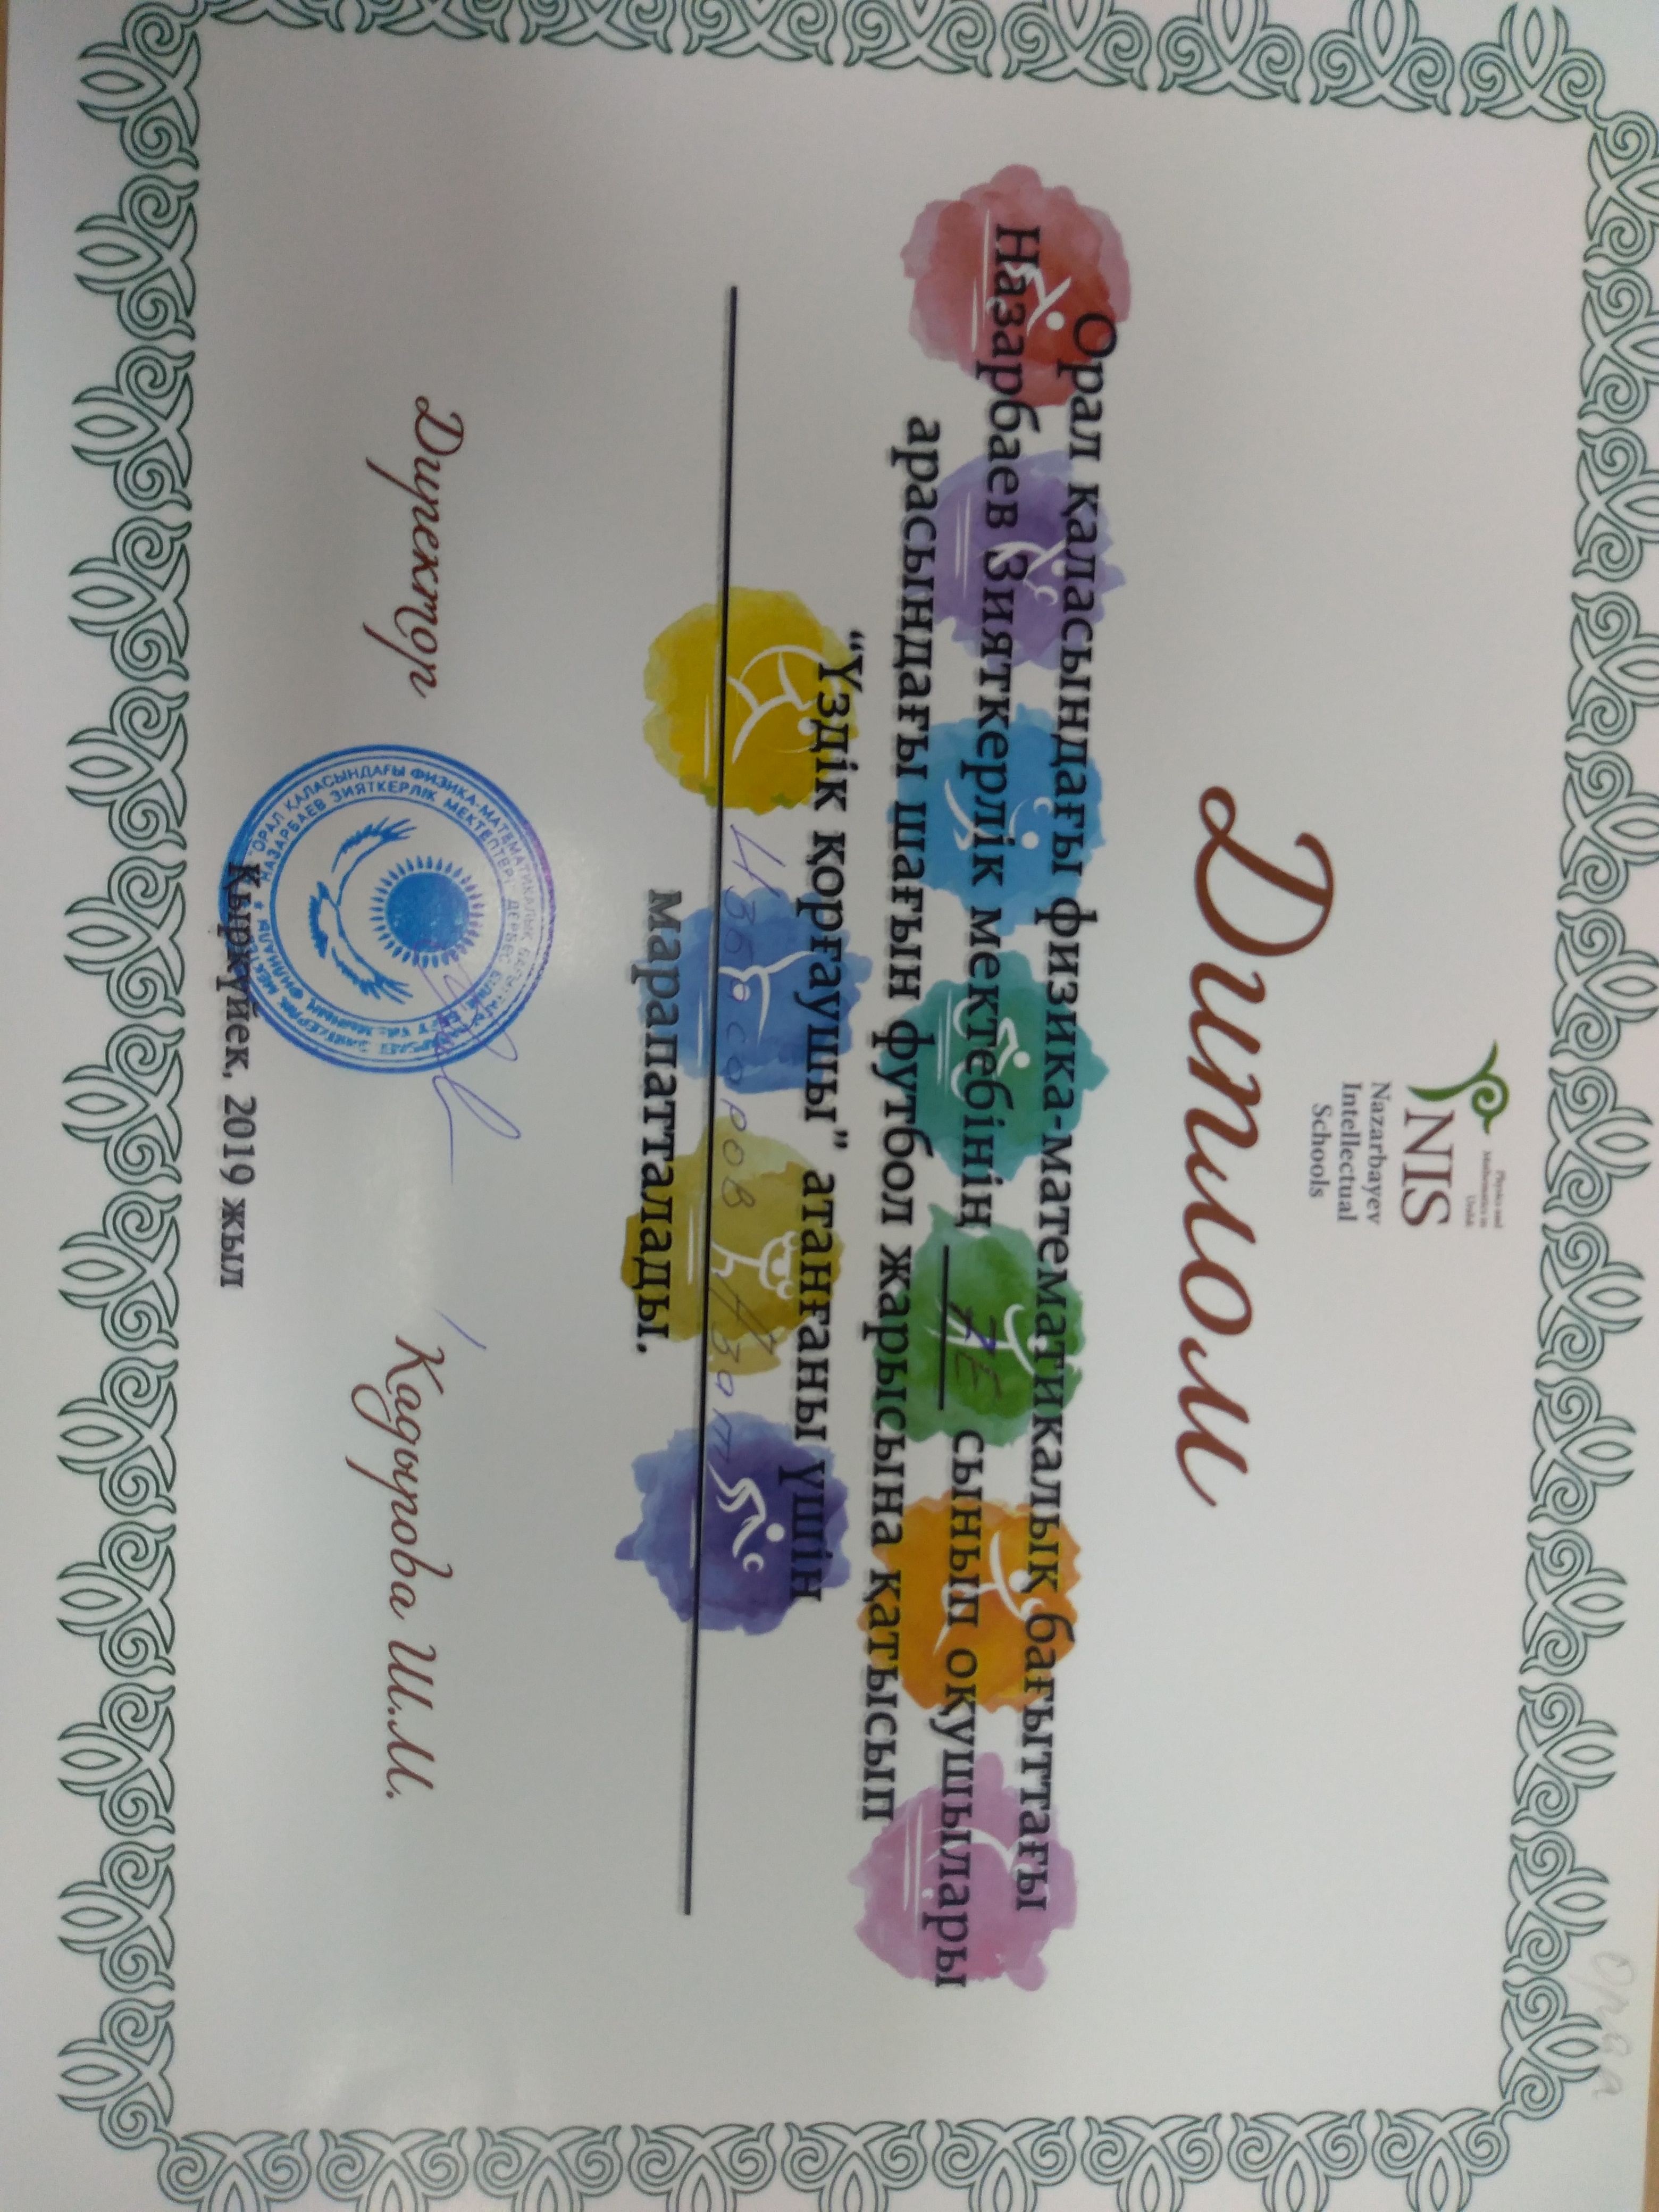 NIS
Physics and
Mathematics in
Uralsk
Nazarbayev
Intellectual
Schools
Диплом
Орал қаласындағы физика-математикалық бағыттағы
Назарбаев Зияткерлік мектебінің 7E сынып оқушылары
арасындағы шағын футбол жарысына қатысып
“Үздік қорғаушы" атанғаны үшін
Избасаров Азат
марапатталады.
Директор Кадырова Ш.М.
ОРАЛ ҚАЛАСЫНДАҒЫ ФИЗИКА-МАТЕМАТИКАЛЫҚ
НАЗАРБАЕВ ЗИЯТКЕРЛІК МЕКТЕПТЕРІ ДЕРБЕС
Қыркүйек, 2019 жыл
Орал